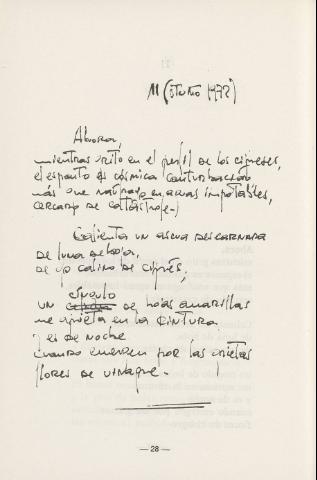 11 (Otoño 1972)
Ahora,
mientras grito en el perfil de los cipreses,
el espanto de cósmica conturbación
más que naufrago en aguas impotables,
cercado de catástrofe.
Calienta un ascua descarnada
de luna de hoja,
de ojo calino de ciprés;
círculo
un de hojas amarillas
me aprieta en la cintura
y es de noche
cuando emergen por las grietas
flores de vinagre.
— 28 —